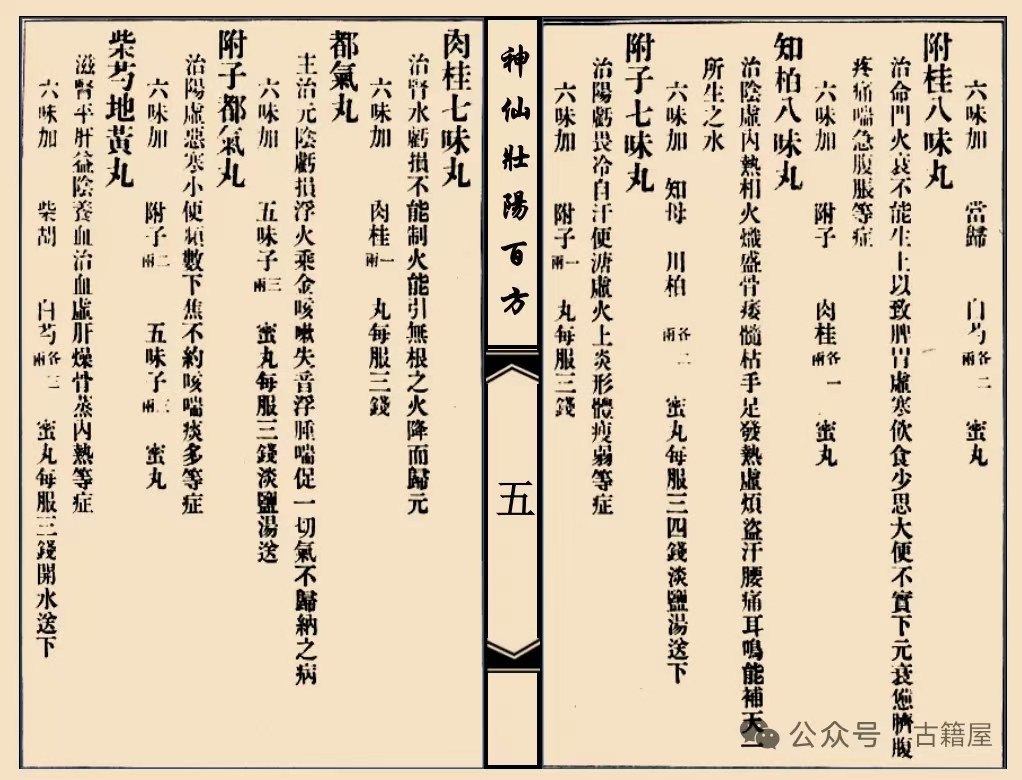 六味加 當歸 白芍各二兩 蜜丸
附桂八味丸
治命門火衰不能生土以致脾胃虛寒飲食少思大便不實下元衰憊臍腹
疼痛喘急腹脹等症
六味加 附子 肉桂各一兩 蜜丸
知柏八味丸
治陰虛內熱相火熾盛骨痿髓枯手足發熱虛煩盜汗腰痛耳鳴能補天一
所生之水
六味加 知母 川柏各二兩 蜜丸每服三四錢淡鹽湯送下
附子七味丸
治陽虧畏冷自汗便溏虛火上炎形體瘦弱等症
六味加 附子一兩 丸每服三錢
神仙壯陽百方
五
肉桂七味丸
治腎水虧損不能制火能引無根之火降而歸元
六味加 肉桂一兩 丸每服三錢
都氣丸
主治元陰虧損浮火乘金咳嗽失音浮腫喘促一切氣不歸納之病
六味加 五味子三兩 蜜丸每服三錢淡鹽湯送
附子都氣丸
治陽虛惡寒小便頻數下焦不約咳喘痰多等症
六味加 附子二兩 五味子三兩 蜜丸
柴芍地黃丸
滋腎平肝益陰養血治血虛肝燥骨蒸內熱等症
六味加 柴胡 白芍各二兩 蜜丸每服三錢開水送下
公众号 古籍屋